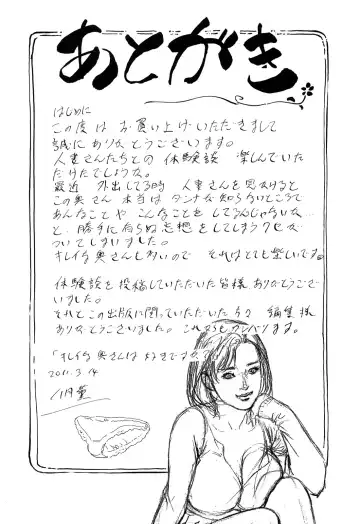 あとがき
はじめに
この度は お買い上げいただきまして
誠にありがとうございます。
人妻さんたちとの 体験談 楽しんでいた
だけたでしょうか。
最近 外出してる時 人妻さんを見かけると
この奥さん 本当は ダンナの知らないところで
あんなことや こんなことを してるんじゃないか…
と、勝手に有らぬ妄想をしてしまうクセが
ついてしまいました。
キレイな奥さんしかいので それはとても楽しいです。
体験談を投稿していただいた皆様 ありがとうござ
いました。
それとこの出版に関っていただいた方々 編集様
ありがとうございました。これからもガンバります。
「キレイな奥さんは好きですか？」
2011.3.14
八月薫